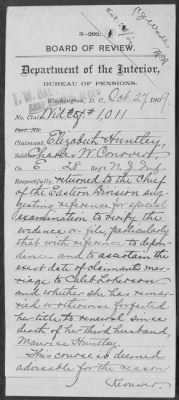 3-202.
BOARD OF REVIEW.
Department of the Interior,
BUREAU OF PENSIONS.
Washington, D. C., Oct 27, 1909
No. Wid 1,011
Cert. No.
Claimant, Elizabeth Huntley,
Charles W. Conover
Co. E 28 Reg't N.J. Inf
Respectfully returned to the Chief
of the Eastern Division sug
gesting reference for special
examination to verify the
evidence on file, particularly
that with reference to depen
dence and to ascertain the
exact date of claimant's mar
riage to Caleb
and whether she has remar
ried or otherwise forfeited
her title to renewal since
death of her third husband,
Maurice Huntley.
This course is deemed
advisable for the reason